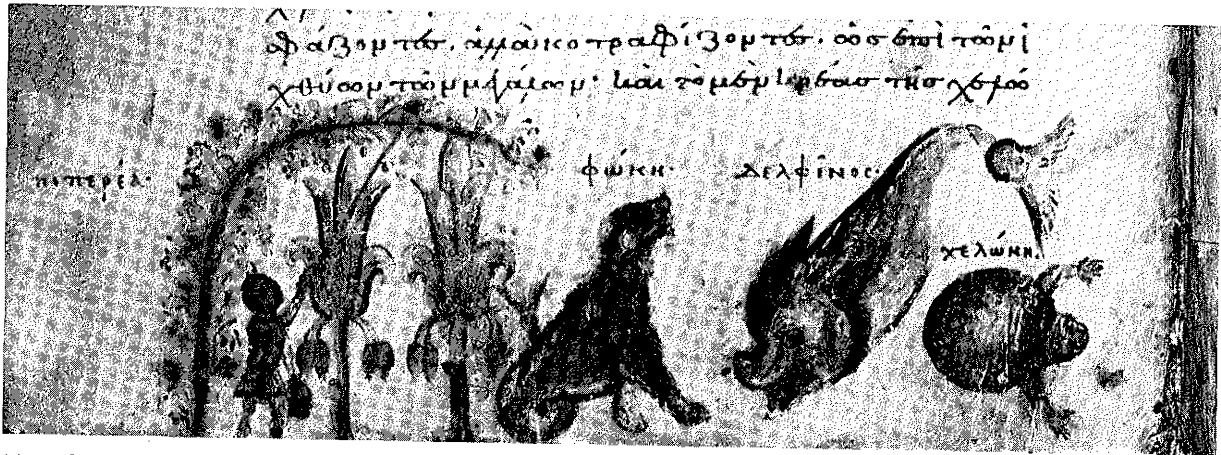 σφάζοντες. ἀλλὰ κοτραφίζοντες. ὡς ἐπὶ τῶν ἰ
χθύων τῶν μεγάλων· καὶ τὸ μὲν κρέας τῆς χελώ
πιπερέα·
φώκη·
δελφῖνος·
χελώνη.